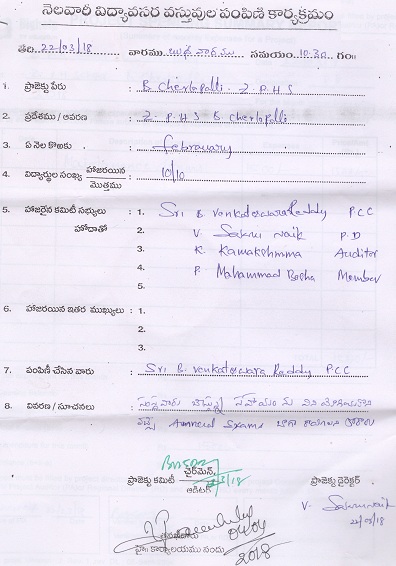 నెలవారీ విద్యావసర వస్తువుల పంపిణి కార్యక్రమం
తేది.22/03/18 వారము బుధవారము సమయం.10.30 గం॥
1. ప్రాజెక్టు పేరు : B. Cherlopalli. Z.P.H.S
2. ప్రదేశము / ఆవరణ : Z.P.H.S B. Cherlopalli
3. ఏ నెల కొఱకు : February
4. విద్యార్థుల సంఖ్య హాజరయిన / మొత్తము : 10/10
5. హాజరైన కమిటీ సభ్యులు హోదాతో : 1. Sri B. Venkateswara Reddy P.C.C
2. V. Sakru Naik P.D
3. K. Kamakshmma Auditor
4. P. Mahammad Basha Member
5.
6. హాజరయిన ఇతర ముఖ్యులు : 1.
2.
3.
7. పంపిణీ చేసిన వారు : Sri B. Venkateswara Reddy P.CC
8. వివరణ / సూచనలు :
Annual Exams బాగా
ప్రాజెక్టు కమిటీ చైర్మెన్, /3/18 ప్రాజెక్టు డైరెక్టర్
ఆడిటర్
V. Sakrunaik
22/03/18
04/04
హై॥ కార్యాలయము నందు
2018